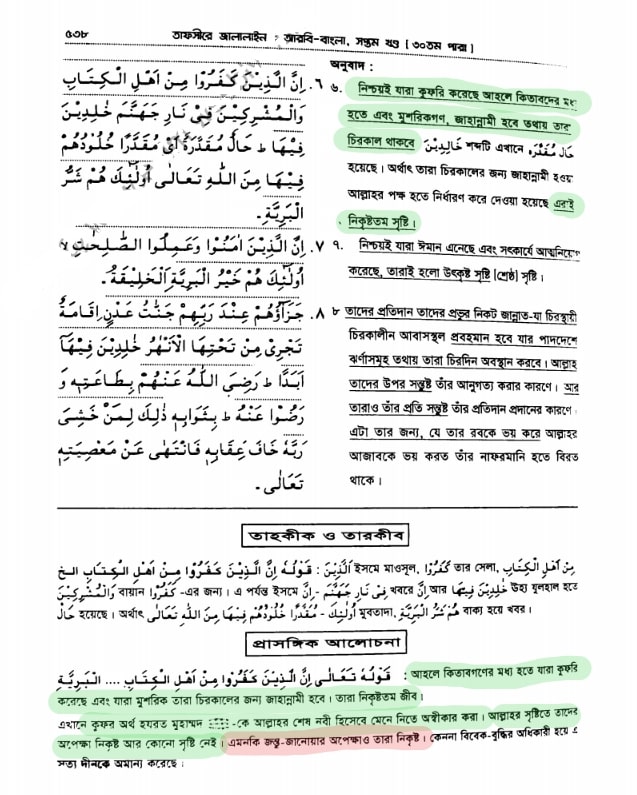 ৫৩৮ তাফসীরে জালালাইন : আরবি-বাংলা, সপ্তম খণ্ড [ ৩০তম পারা ]
٦. إِنَّ الَّذِيْنَ كَفَرُوْا مِنْ اَهْلِ الْكِتَابِ
وَالْمُشْرِكِيْنَ فِىْ نَارِ جَهَنَّمَ خٰلِدِيْنَ
فِيْهَا ط حَالٌ مُقَدَّرَةٌ اَىْ مُقَدَّرًا خُلُوْدُهُمْ
فِيْهَا مِنَ اللّٰهِ تَعَالٰى اُولٰٓئِكَ هُمْ شَرُّ
الْبَرِيَّةِ۔
٧. اِنَّ الَّذِيْنَ اٰمَنُوْا وَعَمِلُوا الصّٰلِحٰتِ
اُولٰٓئِكَ هُمْ خَيْرُ الْبَرِيَّةِ الْخَلِيْقَةِ۔
٨. جَزَآؤُهُمْ عِنْدَ رَبِّهِمْ جَنّٰتُ عَدْنٍ اِقَامَةٍ
تَجْرِىْ مِنْ تَحْتِهَا الْاَنْهٰرُ خٰلِدِيْنَ فِيْهَا
اَبَدًا ط رَضِىَ اللّٰهُ عَنْهُمْ بِطَاعَتِهٖ وَ
رَضُوْا عَنْهُ ط بِثَوَابِهٖ ذٰلِكَ لِمَنْ خَشِىَ
رَبَّهٗ خَافَ عِقَابَهٗ فَانْتَهٰى عَنْ مَعْصِيَتِهٖ
تَعَالٰى۔
অনুবাদ :
৬. নিশ্চয়ই যারা কুফরি করেছে আহলে কিতাবদের মধ্য
হতে এবং মুশরিকগণ, জাহান্নামী হবে তথায় তারা
চিরকাল থাকবে خَالِدِيْنَ শব্দটি এখানে حَال مُقَدَّرَه
হয়েছে। অর্থাৎ তারা চিরকালের জন্য জাহান্নামী হওয়া
আল্লাহর পক্ষ হতে নির্ধারণ করে দেওয়া হয়েছে এরাই
নিকৃষ্টতম সৃষ্টি।
৭. নিশ্চয়ই যারা ঈমান এনেছে এবং সৎকার্যে আত্মনিয়োগ
করেছে, তারাই হলো উৎকৃষ্ট সৃষ্টি [শ্রেষ্ঠ] সৃষ্টি।
৮ তাদের প্রতিদান তাদের প্রভুর নিকট জান্নাত-যা চিরস্থায়ী
চিরকালীন আবাসস্থল প্রবহমান হবে যার পাদদেশে
ঝর্ণাসমূহ তথায় তারা চিরদিন অবস্থান করবে। আল্লাহ
তাদের উপর সন্তুষ্ট তাঁর আনুগত্য করার কারণে। আর
তারাও তাঁর প্রতি সন্তুষ্ট তাঁর প্রতিদান প্রদানের কারণে।
এটা তার জন্য, যে তার রবকে ভয় করে আল্লাহর
আজাবকে ভয় করত তাঁর নাফরমানি হতে বিরত
থাকে।
তাহকীক ও তারকীব
قَوْلُهُ اِنَّ الَّذِيْنَ كَفَرُوْا مِنْ اَهْلِ الْكِتَابِ الخ : الَّذِيْنَ ইসমে মাওসূল, كَفَرُوْا তার সেলা, مِنْ اَهْلِ الْكِتَابِ
وَالْمُشْرِكِيْنَ বায়ান كَفَرُوْا -এর জন্য। এ পর্যন্ত ইসমে اِنَّ - فِىْ نَارِ جَهَنَّمَ খবরে اِنَّ আর خٰلِدِيْنَ فِيْهَا উহ্য যুলহাল হতে
حَالٌ হয়েছে। অর্থাৎ مُقَدَّرًا خُلُوْدُهُمْ فِيْهَا مِنَ اللّٰهِ تَعَالٰى - اُولٰٓئِكَ মুবতাদা, هُمْ شَرُّ الْبَرِيَّةِ বাক্য হয়ে খবর।
প্রাসঙ্গিক আলোচনা
قَوْلُهُ تَعَالٰى اِنَّ الَّذِيْنَ كَفَرُوْا مِنْ اَهْلِ الْكِتَابِ .... الْبَرِيَّةِ : আহলে কিতাবগণের মধ্য হতে যারা কুফরি
করেছে এবং যারা মুশরিক তারা চিরকালের জন্য জাহান্নামী হবে। তারা নিকৃষ্টতম জীব।
এখানে কুফর অর্থ হযরত মুহাম্মদ -কে আল্লাহর শেষ নবী হিসেবে মেনে নিতে অস্বীকার করা। আল্লাহর সৃষ্টিতে তাদের
অপেক্ষা নিকৃষ্ট আর কোনো সৃষ্টি নেই। এমনকি জন্তু-জানোয়ার অপেক্ষাও তারা নিকৃষ্ট। কেননা বিবেক-বুদ্ধির অধিকারী হয়ে এ
সত্য দীনকে অমান্য করেছে।